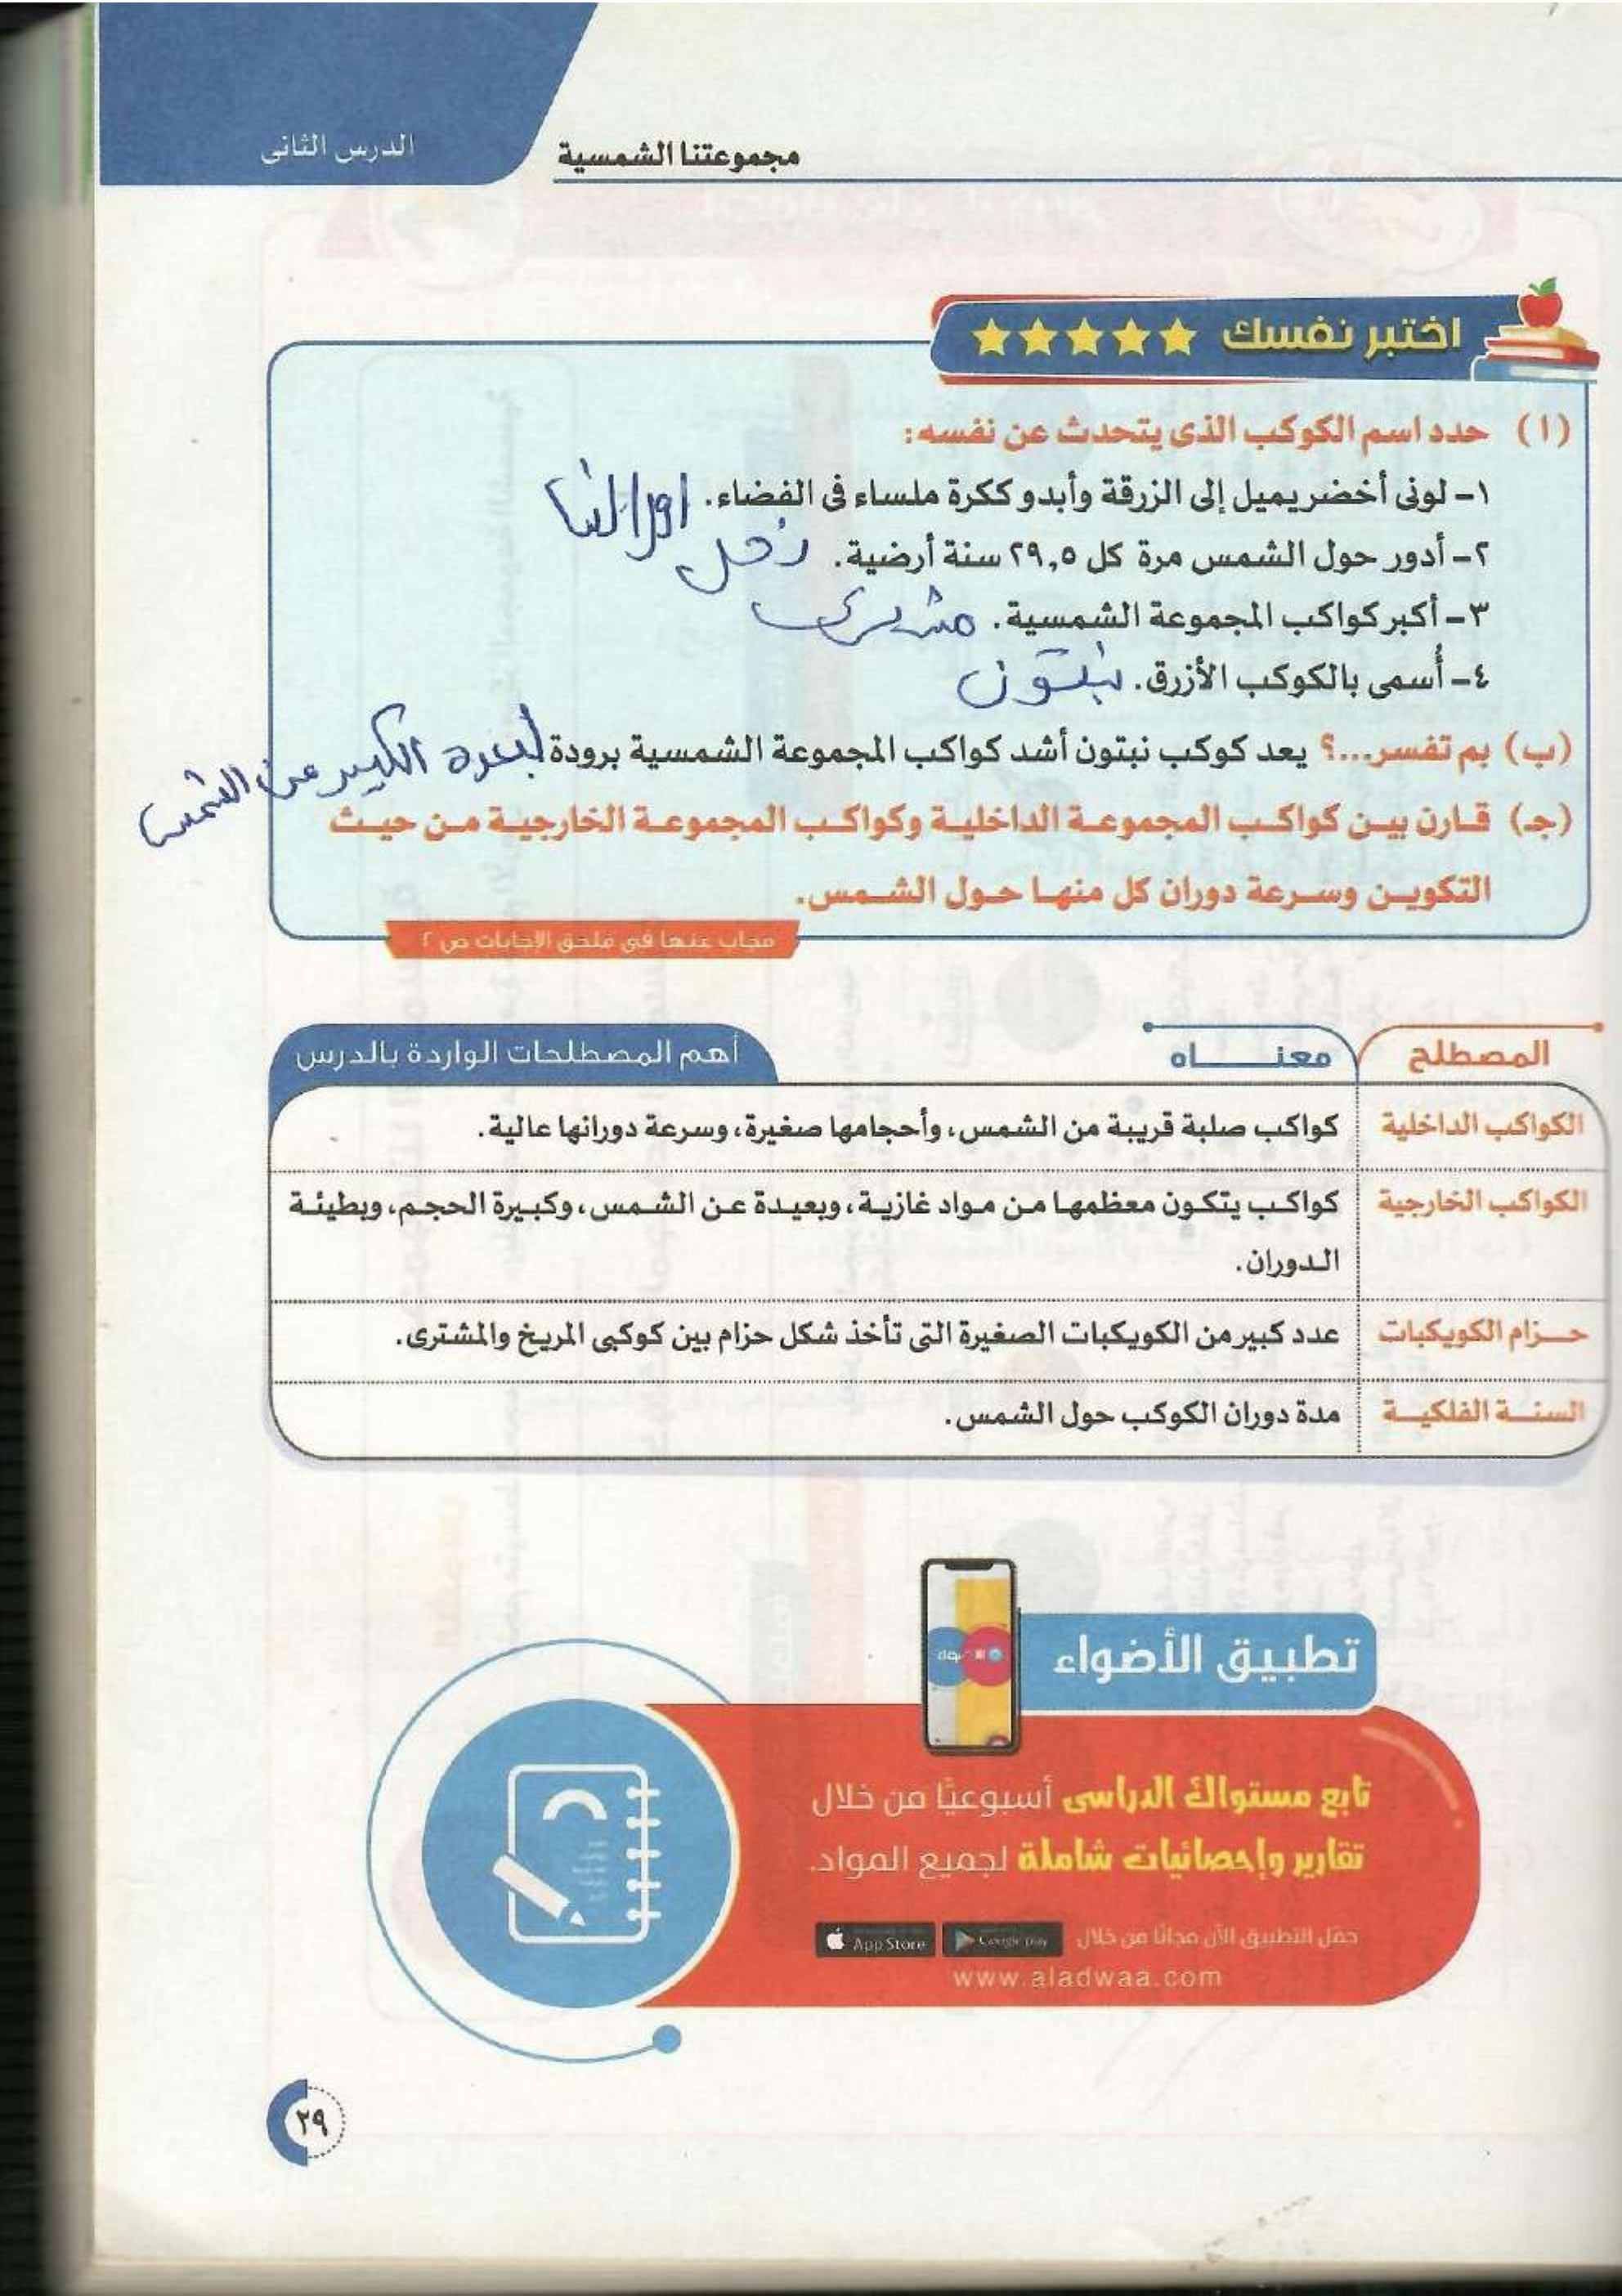 الدرس الثانى
مجموعتنا الشمسية
اختبر نفسك
(ا) حدد اسم الكوكب الذى يتحدث عن نفسه:
١- لونى أخضر يميل إلى الزرقة وأبدو ككرة ملساء فى الفضاء. اورالنيا
٢- أدور حول الشمس مرة كل ٢٩,٥ سنة أرضية. زحل
٣- أكبر كواكب المجموعة الشمسية. مشترى
٤- أُسمى بالكوكب الأزرق. نبتون
(ب) بم تفسر...؟ يعد كوكب نبتون أشد كواكب المجموعة الشمسية برودة لبعده الكبير عن الشمس
(جـ) قارن بين كواكب المجموعة الداخلية وكواكب المجموعة الخارجية من حيث
التكوين وسرعة دوران كل منها حول الشمس.
مجاب عنها فى ملحق الإجابات ص ٢
أهم المصطلحات الواردة بالدرس
المصطلح معناه
الكواكب الداخلية كواكب صلبة قريبة من الشمس، وأحجامها صغيرة، وسرعة دورانها عالية.
الكواكب الخارجية كواكب يتكون معظمها من مواد غازية، وبعيدة عن الشمس، وكبيرة الحجم، وبطيئة
الدوران.
حزام الكويكبات عدد كبير من الكويكبات الصغيرة التى تأخذ شكل حزام بين كوكبى المريخ والمشترى.
السنة الفلكية مدة دوران الكوكب حول الشمس.
تطبيق الأضواء
تابع مستواك الدراسى أسبوعيًا من خلال
تقارير وإحصائيات شاملة لجميع المواد.
حمّل التطبيق الآن مجانًا من خلال Google play App Store
www.aladwaa.com
٢٩